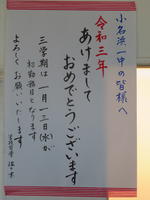 小名浜一中の皆様へ
令和三年
あけまして
おめでとうございます
三学期は一月十三日(水)が
初勤務日となります
よろしくお願いいたします